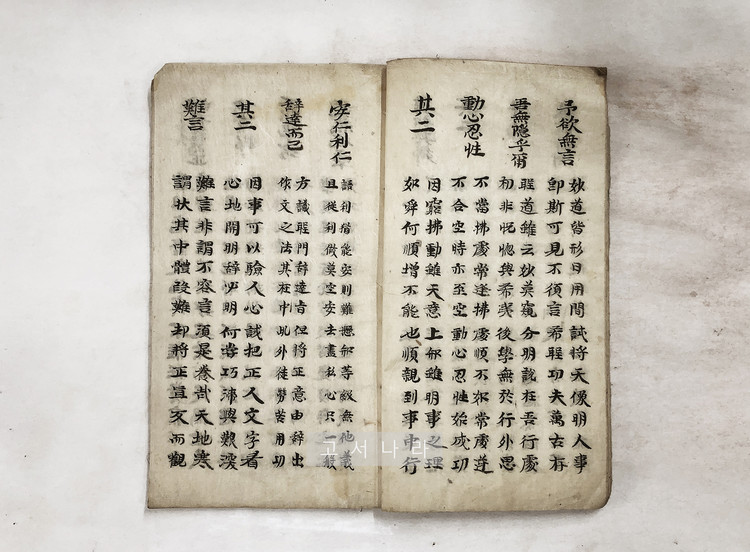 予欲無言
妙道皆形日用間試將天像明人事
即斯可見不須言希聖功夫萬古存
吾無隱乎爾
聖道雖云妙莫窺分明說在吾行處
初非怳惚與希夷後學無於行外思
動心忍性
不當拂處常逢拂處順不如常處逆
不合空時亦至空動心忍性始成功
其二
因窮拂動雖天意上知雖明事之理
如舜何須增不能也須親到事中行
安仁利仁
語到皆能安則難懸知等級無他義
且從利做莫空安去盡私心只一般
辭達而已
方識聖門辭達旨但將正意由辭出
作文之法其在中此外徒勞苦用功
其二
因事可以驗人心試把正人文字看
心地開明辭必明何嘗巧滯與艱深
難言
難言非謂不容言須是養哉天地塞
謂狀其中體段難却將正直反而觀
고서나라